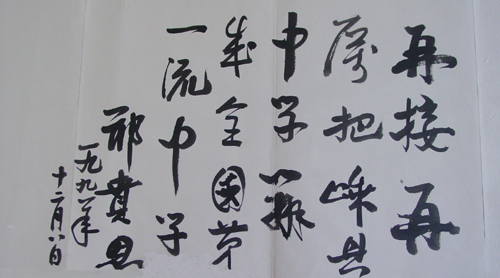 再接再
厉把嵊县
中学办
成全国第
一流中学
邢贲思
一九九一年
十二月八日